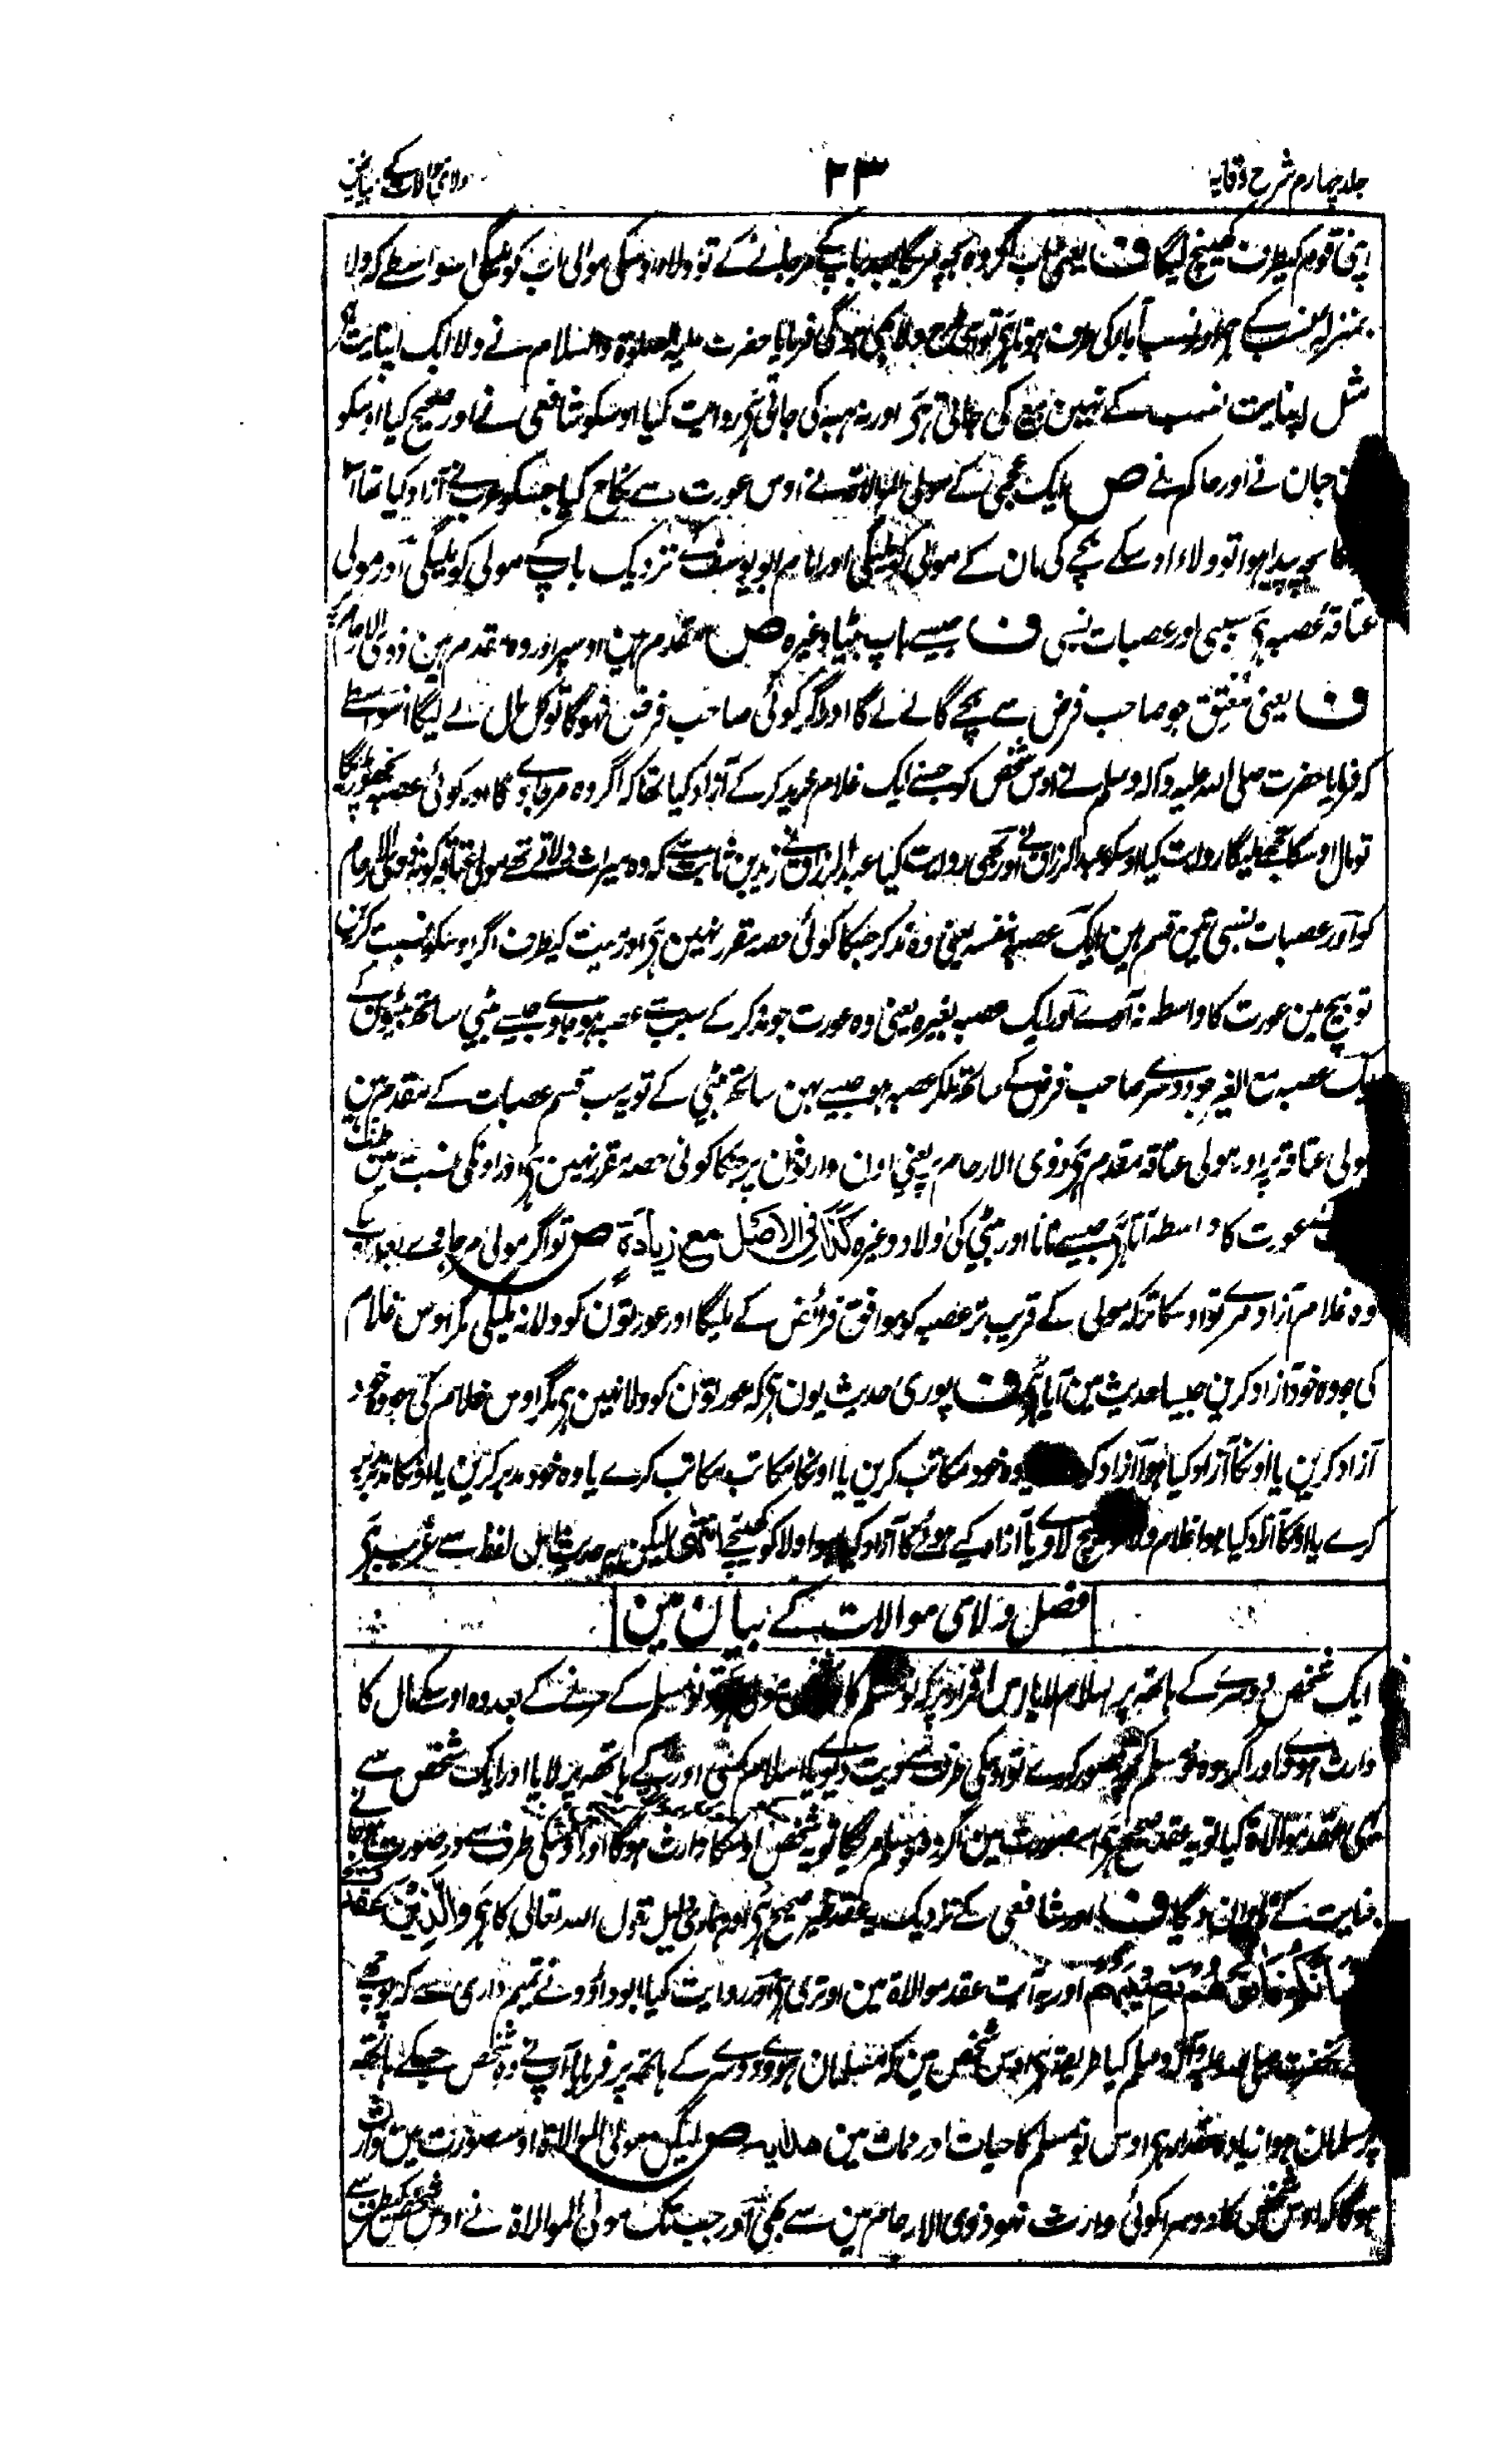 جلد چہارم شرح وقایہ
۲۳
ولای موالات کے بیان
اپنی قوم کیطرف کھینچ لیگا ف یعنی اب اگر وہ بچہ مریگا بعد باپ کے مرجانے کے تو ولاء اوسکی موالی اب کو ملیگی اسواسطے کہ ولا
بمنزلہ نسب کے ہے اور نسب آباء کی طرف ہوتا ہے تو اسی طرح ولا بھی ہوگی فرمایا حضرت علیہ الصلوۃ والسلام نے ولا ایک اپنایت ہے
مثل اپنایت نسب کے نہین بیع کی جاتی ہے اور نہ ہبہ کی جاتی ہے روایت کیا اوسکو شافعی نے اور صحیح کیا اوسکو
حبان نے اور حاکم نے ص ایک عجمی کے مولی الموالاۃ نے اوس عورت سے نکاح کیا جسکو عرب نے آزاد کیا تھا
بچہ پیدا ہوا تو ولاء اوسکے بچے کی مان کے موالی کو ملیگی اور امام ابو یوسف کے نزدیک باپ کے مولی کو ملیگی اور مولی
عتاقہ عصبہ ہے سببی اور عصبات نسبی ف جیسے باپ بیٹا وغیرہ ص مقدم ہین اوسپر اور وہ مقدم ہین ذوی الارحام پر
ف یعنی مُعتِق جو صاحب فرض سے بچے گا لے لے گا اور اگر کوئی صاحب فرض نہوگا تو کل مال لے لیگا اسواسطے
کہ فرمایا حضرت صلی اللہ علیہ وآلہ وسلم نے اوس شخص کو جسنے ایک غلام خرید کر کے آزاد کیا تھا کہ اگر وہ مرجاوے گا اور کوئی عصبہ نچھوڑیگا
تو مال اوسکا تجھے ملیگا روایت کیا اوسکو عبد الرزاق نے اور بھی روایت کیا عبد الرزاق نے زید بن ثابت سے کہ وہ میراث دلاتے تھے مولی عتاقہ کو نہ ذوی الارحام
کو اور عصبات نسبی تین قسم ہین ایک عصبہ بنفسہ یعنی وہ مذکر جسکا کوئی حصہ مقرر نہین ہے اور میت کیطرف اگر اوسکو نسبت کرین
تو بیچ مین عورت کا واسطہ نہ آوے اور ایک عصبہ بغیرہ یعنی وہ عورت جو مذکر کے سبب سے عصبہ ہو جاوے جیسے بیٹی ساتھ بیٹون کے
ایک عصبہ مع الغیر جو دوسرے صاحب فرض کے ساتھ ملکر عصبہ ہو جیسے بہن ساتھ بیٹی کے تو یہ سب قسم عصبات کے مقدم ہین
مولی عتاقہ پر اور مولی عتاقہ مقدم ہے ذوی الارحام پر یعنی اون وارثون پر جنکا کوئی حصہ مقرر نہین ہے اور اونکی نسبت مین
عورت کا واسطہ آتا ہے جیسے نانا اور بیٹی کی اولاد وغیرہ کذا فی الاصل مع زیادۃ ص تو اگر مولی مرجاوے بعد اوسکے
وہ غلام آزاد مرے تو اوسکا ترکہ مولی کے قریب تر عصبہ کو موافق فرائض کے ملیگا اور عورتون کو ولا نہ ملیگی مگر اوس غلام
کی جو وہ خود آزاد کرین جیسا حدیث مین آیا ہے ف پوری حدیث یون ہے کہ عورتون کو ولا نہین ہے مگر اوس غلام کی جو وہ خود
آزاد کرین یا اونکا آزاد کیا ہوا آزاد کرے وہ خود مکاتب کرین یا اونکا مکاتب مکاتب کرے یا وہ خود مدبر کرین یا اونکا مدبر مدبر
کرے یا اونکا آزاد کیا ہوا غلام ولا کھینچ لاوے یا آزاد کیے ہوئے کا آزاد کیا ہوا ولا کو کھینچے انتہی لیکن یہ حدیث اس لفظ سے غریب ہے
فصل ولای موالات کے بیان مین
ایک شخص دوسرے کے ہاتھ پر اسلام لایا اس اقرار پر کہ نومسلم کا نومسلم کے مرنے کے بعد وہ اوسکے مال کا
وارث ہووے اور اگر وہ نومسلم کچھ قصور کرے تو اوسکی طرف سے دیت دیوے یا اسلام کسی اور کے ہاتھ پر لایا اور ایک شخص سے
یہی عقد موالاۃ کیا تو یہ عقد صحیح ہے اس صورت مین اگر وہ نومسلم مریگا تو یہ شخص اوسکا وارث ہوگا اور اوسکی طرف سے در صورت
جنایت کے تاوان دیگا ف اور شافعی کے نزدیک یہ عقد غیر صحیح ہے اور ہماری دلیل قول اللہ تعالی کا ہے والذین عقدت
ایمانکم فآتوھم نصیبھم اور یہ آیت عقد موالاۃ مین اوتری ہے اور روایت کیا ابو داؤد نے تمیم داری سے کہ پوچھے
آنحضرت صلی اللہ علیہ وآلہ وسلم کیا طریقہ ہے اوس شخص مین کہ مسلمان ہووے دوسرے کے ہاتھ پر فرمایا آپ نے وہ شخص جسکے ہاتھ
پر مسلمان ہوا زیادہ حقدار ہے اوس نومسلم کا حیات اور ممات مین ھدایہ ص لیکن مولی الموالاۃ اوسصورت مین وارث
ہوگا کہ اوس شخص کا دوسرا کوئی وارث نہو ذوی الارحام مین سے بھی اور جبتک مولی الموالاۃ نے اوس شخص کیطرف سے